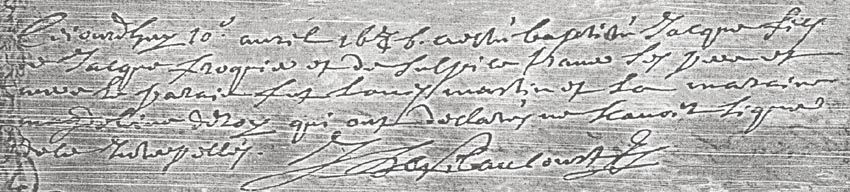 aujourdhuy 10e auril 16 6. a esté baptisé Jacque fils
de Jacque froquie et de Sulpice ses pere et
mere le parain fut Louys martin et la maraine
magdeleine deroy qui ont declarés ne scauoir signer
de ce Interpellés.